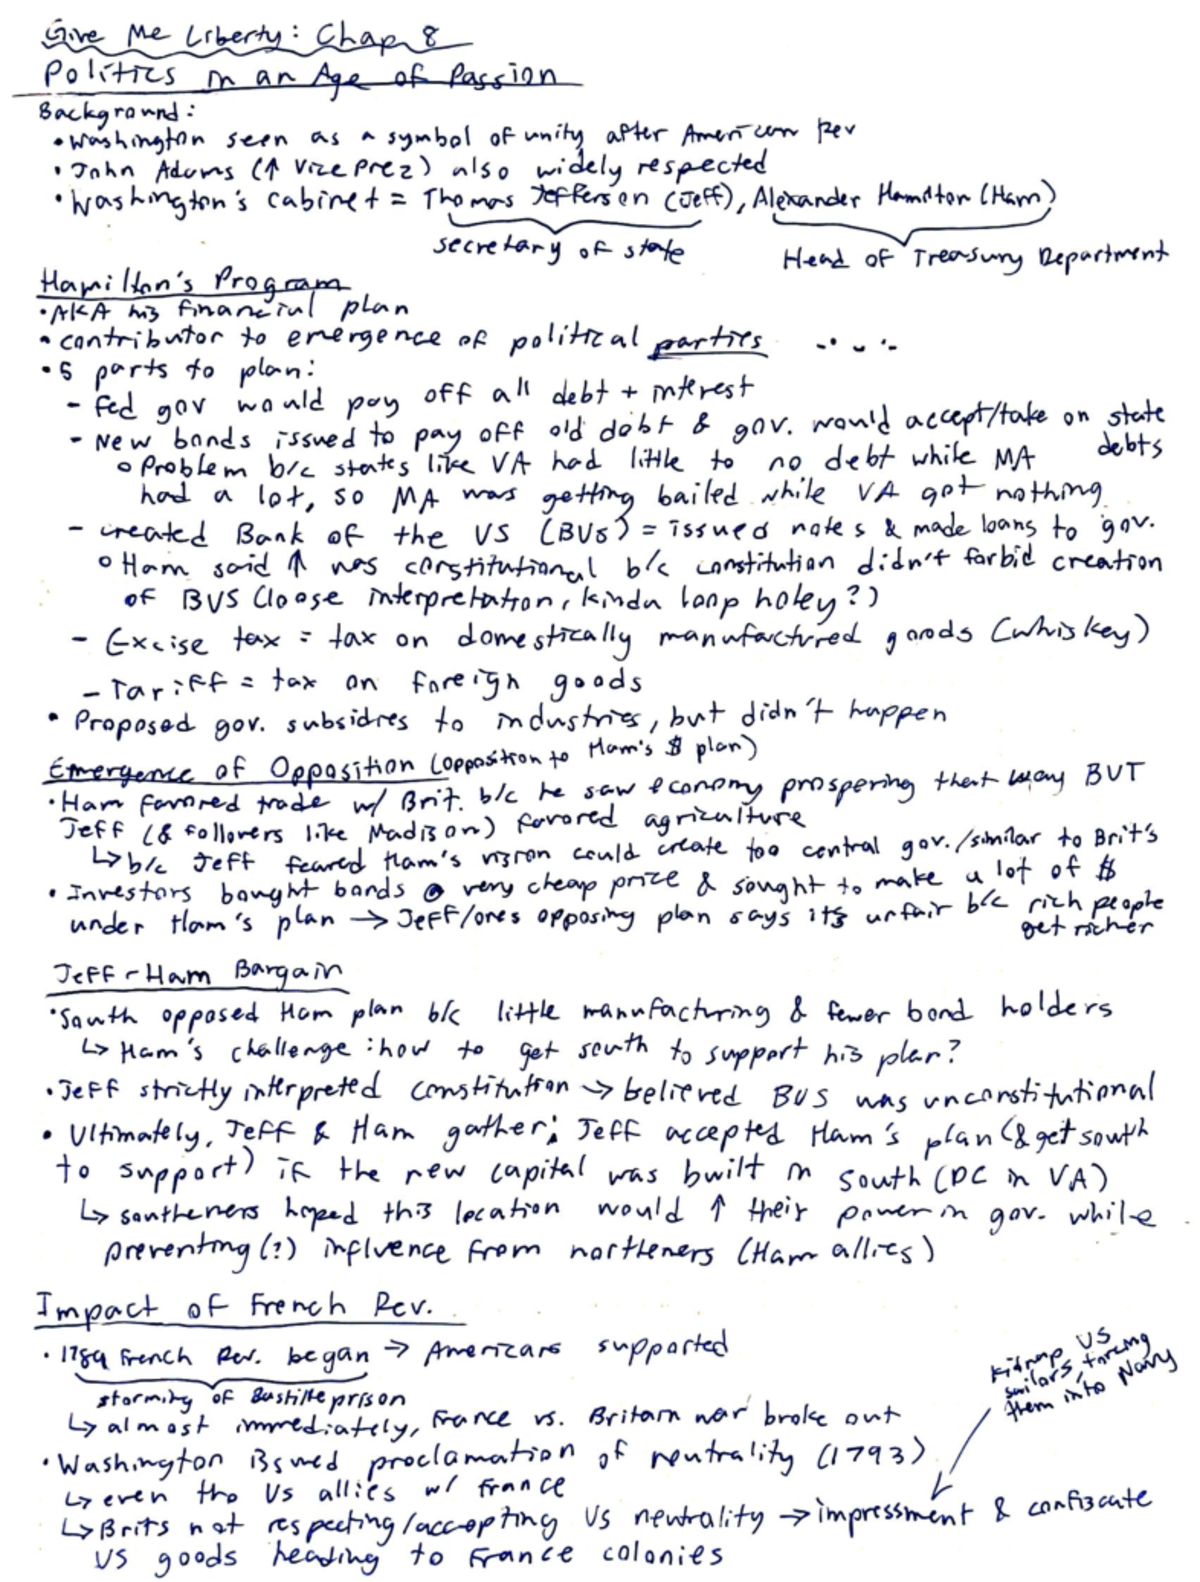 Give Me Liberty: Chap 8
Politics in an Age of Passion
Background:
• Washington seen as a symbol of unity after American Rev
• John Adams (↑ Vice Prez) also widely respected
• Washington's cabinet = Thomas Jefferson (Jeff), Alexander Hamilton (Ham)
secretary of state
Head of Treasury Department
Hamilton's Program
• AKA his financial plan
• contributor to emergence of political parties
• 5 parts to plan:
- Fed gov would pay off all debt + interest
- New bonds issued to pay off old debt & gov. would accept/take on state debts
o Problem b/c states like VA had little to no debt while MA
had a lot, so MA was getting bailed while VA got nothing
- created Bank of the US (BUS) = issued notes & made loans to gov.
o Ham said ↑ was constitutional b/c constitution didn't forbid creation
of BUS (loose interpretation, kinda loop holey?)
- Excise tax = tax on domestically manufactured goods (whiskey)
- Tariff = tax on foreign goods
• Proposed gov. subsidies to industries, but didn't happen
Emergence of Opposition (opposition to Ham's $ plan)
• Ham favored trade w/ Brit. b/c he saw economy prospering that way BUT
Jeff (& followers like Madison) favored agriculture
↳ b/c Jeff feared Ham's vision could create too central gov./similar to Brit's
• Investors bought bonds @ very cheap price & sought to make a lot of $
under Ham's plan → Jeff/ones opposing plan says it's unfair b/c rich people
get richer
Jeff-Ham Bargain
• South opposed Ham plan b/c little manufacturing & fewer bond holders
↳ Ham's challenge: how to get south to support his plan?
• Jeff strictly interpreted constitution → believed BUS was unconstitutional
• Ultimately, Jeff & Ham gather; Jeff accepted Ham's plan (& get south
to support) if the new capital was built in South (DC in VA)
↳ southeners hoped this location would ↑ their power in gov. while
preventing (?) influence from northeners (Ham allies)
Impact of French Rev.
• 1789 French Rev. began → Americans supported
storming of Bastille prison
↳ almost immediately, France vs. Britain war broke out
kidnap US
sailors forcing
them into Navy
• Washington issued proclamation of neutrality (1793)
↳ even tho US allies w/ France
↳ Brits not respecting/accepting US neutrality → impressment & confiscate
US goods heading to France colonies